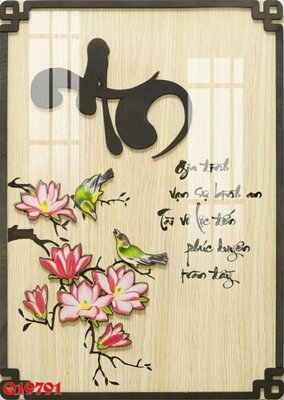 An
Gia đình
vạn sự bình an
Tài vô lộc đến
phúc
tràn đầy
Q19791